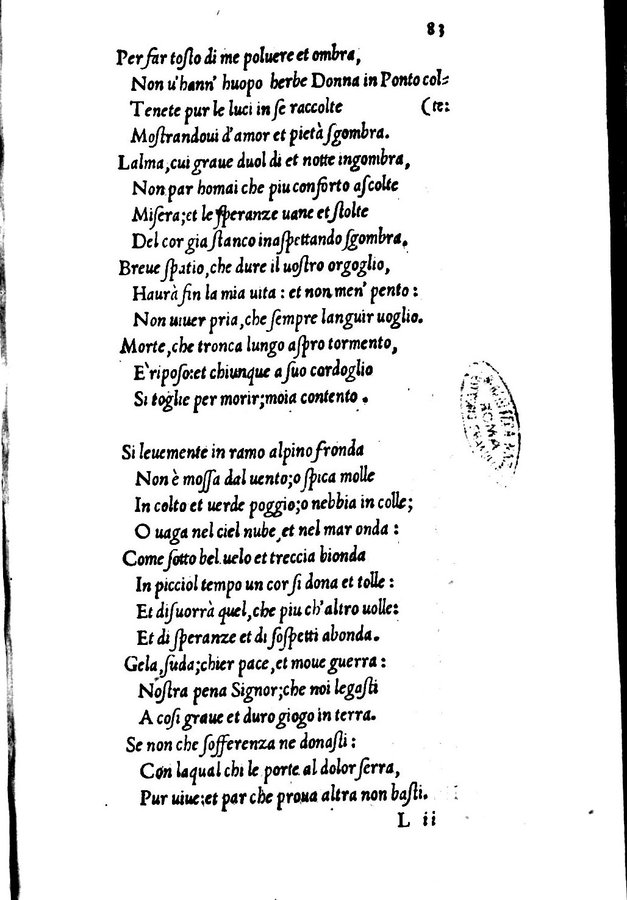 83
Per far toſto di me poluere et ombra,
Non u'hann' huopo herbe Donna in Ponto col-
Tenete pur le luci in ſe raccolte (te:
Moſtrandoui d'amor et pietà ſgombra.
Lalma, cui graue duol di et notte ingombra,
Non par homai che piu conforto aſcolte
Miſera; et le ſperanze uane et ſtolte
Del cor gia ſtanco inaſpettando ſgombra.
Breue ſpatio, che dure il uoſtro orgoglio,
Haurà fin la mia uita : et non men' pento :
Non uiuer pria, che ſempre languir uoglio.
Morte, che tronca lungo aſpro tormento,
E' ripoſo: et chiunque a ſuo cordoglio
Si toglie per morir; moia contento .
Si leuemente in ramo alpino fronda
Non è moſſa dal uento; o ſpica molle
In colto et uerde poggio; o nebbia in colle;
O uaga nel ciel nube, et nel mar onda :
Come ſotto bel uelo et treccia bionda
In picciol tempo un cor ſi dona et tolle :
Et diſuorrà quel, che piu ch'altro uolle:
Et di ſperanze et di ſoſpetti abonda.
Gela, ſuda; chier pace, et moue guerra :
Noſtra pena Signor; che noi legaſti
A coſi graue et duro giogo in terra.
Se non che ſofferenza ne donaſti :
Con laqual chi le porte al dolor ſerra,
Pur uiue; et par che proua altra non baſti.
L ii
ROMA